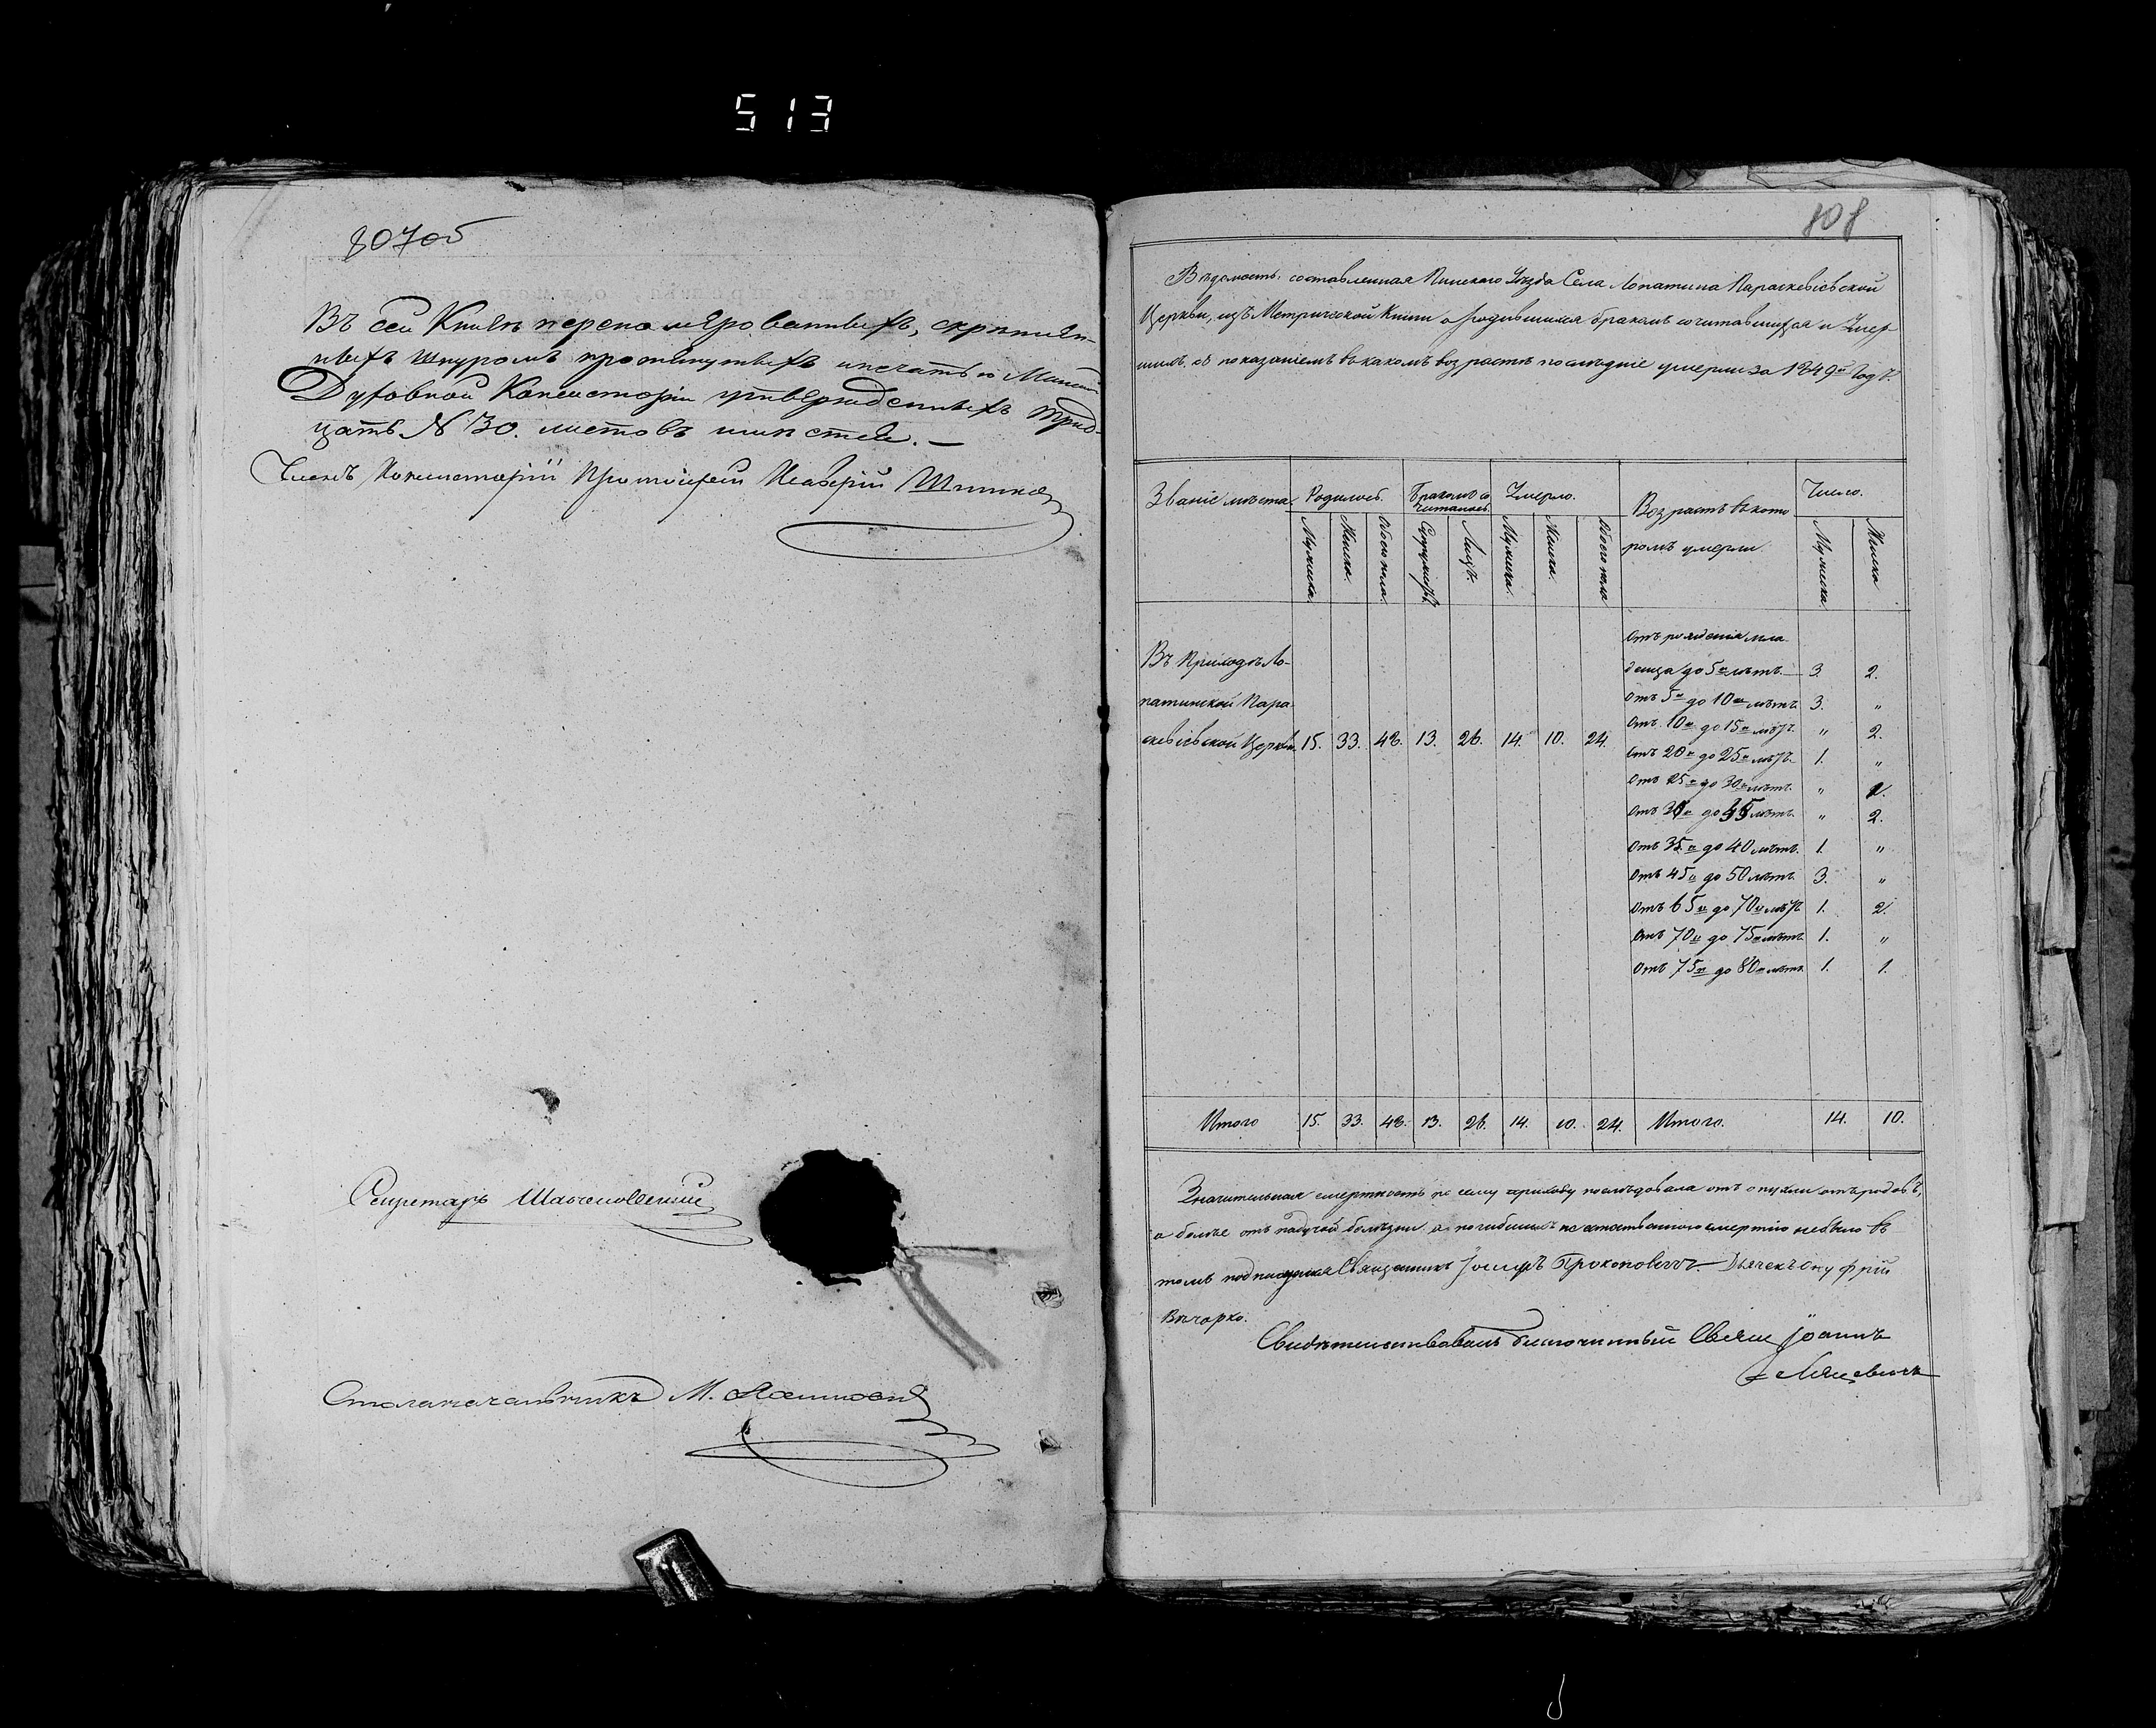 513
807об
Въ сей Книгѣ переномѣрованныхъ, скрѣплен-
ныхъ шнуромъ протянутыхъ и печатью Минской
Духовной Консисторіи утвержденныхъ трид-
цать № 30. листовъ
Членъ Консисторіи Протоіерей
Секретарь
Столоначальникъ М.
808
Вѣдомость, составленная Пинскаго Уѣзда Села Лопатина Параскевіевской
Церкви, изъ Метрической Книги о родившихся бракомъ сочитавшихся и Умер
шихъ, съ показаніемъ въ какомъ возрастѣ послѣдніе умерли за 1849й Годъ.
Званіе мѣста. Родилось. Бракомъ со Умерло. Возрастъ въ кото Число.
читалось
ромъ умерли.
Мужеска. Женска. Обоего пола. Супружѣствъ Лицъ. Мужеска. Женска. Обоего пола Мужеска. Женска
Отъ рожденія мла
Въ Приходѣ Ло-
денца до 5и лѣтъ. 3. 2.
патинской Пара
Отъ 5и до 10и лѣтъ. 3. "
Отъ 10и до 15и лѣтъ. " 2.
скевіевской Церкви. 15. 33. 48. 13. 26. 14. 10. 24.
Отъ 20и до 25и лѣтъ. 1. "
Отъ 25и до 30и лѣтъ. "
Отъ до лѣтъ. " 2.
Отъ 35и до 40 лѣтъ. 1. "
Отъ 45и до 50 лѣтъ. 3. "
Отъ 65и до 70и лѣтъ 1. 2.
Отъ 70и до 75и лѣтъ 1. "
Отъ 75и до 80и лѣтъ. 1. 1.
Итого 15. 33. 48. 13. 26. 14. 10. 24. Итого. 14. 10.
Значительная смертность по сему приходу послѣдовала отъ опухли отъ родовъ,
а болѣе отъ падучей болѣзни, а погибшихъ не естественною смертію небыло въ
томъ Священникъ Іосифъ Прокоповичъ. Дьячекъ Онуфрій
Вечорко.
Свидѣтельствовалъ благочинный Свящ Іоаннъ